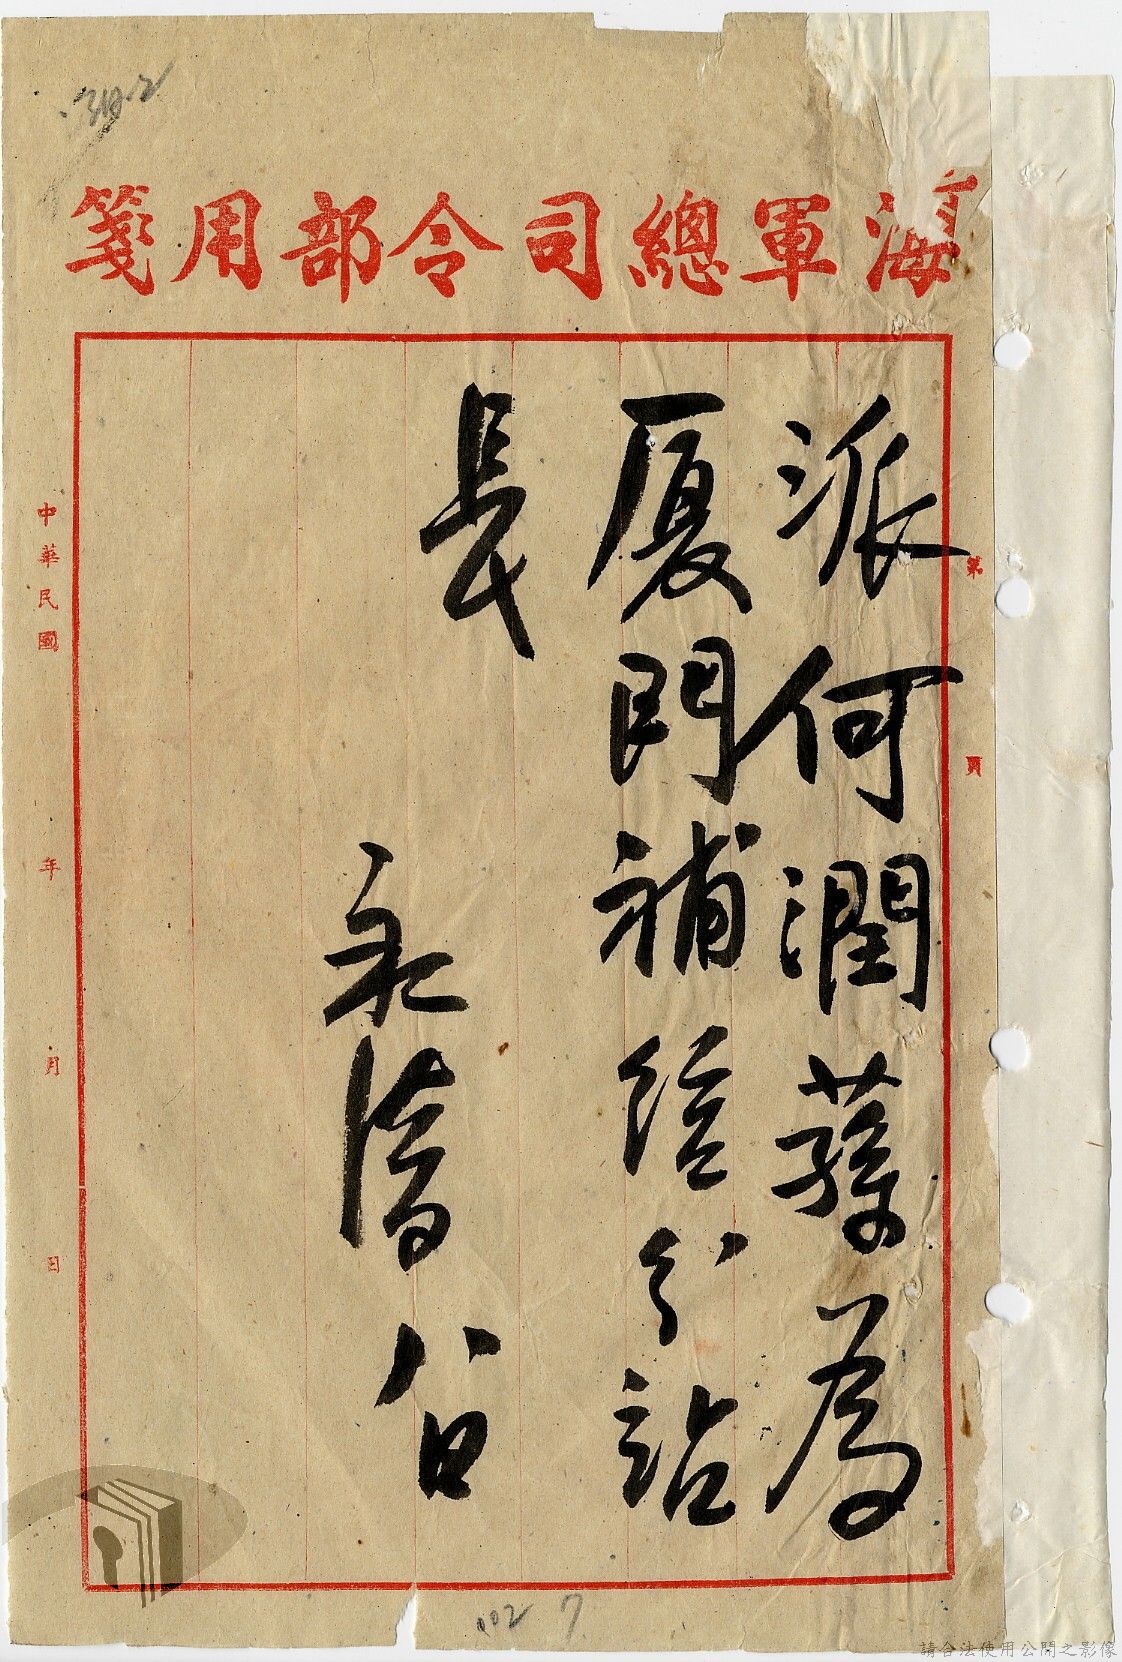 海軍總司令部用箋
第 頁
派何潤蓀為
厦門補給分站
長
永清 八日
中華民國 年 月 日
102 7
請合法使用公開之影像